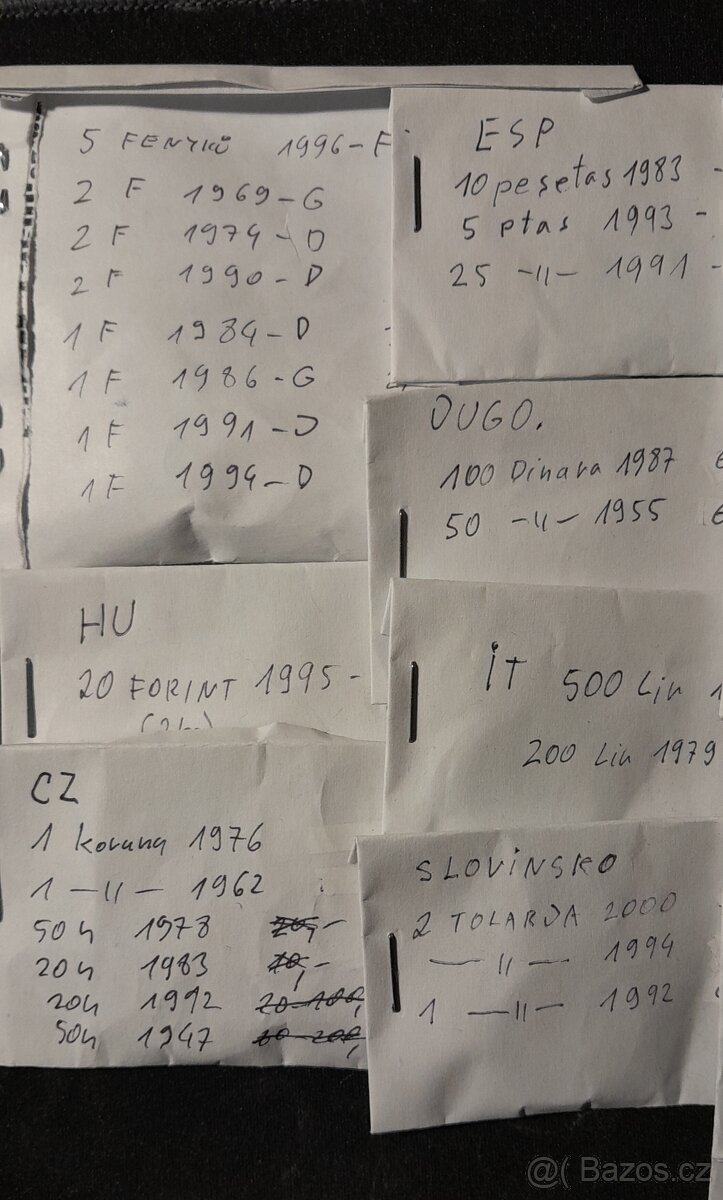 5 FENYKŮ 1996-F
2 F 1969-G
2 F 1974-D
2 F 1990-D
1 F 1984-D
1 F 1986-G
1 F 1991-J
1 F 1994-D
ESP
10 pesetas 1983 -
5 ptas 1993 -
25 -11- 1991 -
JUGO.
100 Dinara 1987
50 -11- 1955
HU
20 FORINT 1995-
İT 500 Lir 1
200 Lir 1979
CZ
1 koruna 1976
1 -11- 1962
50h 1978 20,-
20h 1983 10,-
20h 1992 20-100,
50h 1947
SLOVINSKO
2 TOLARJA 2000
-11- 1994
1 -11- 1992
@( Bazos.cz